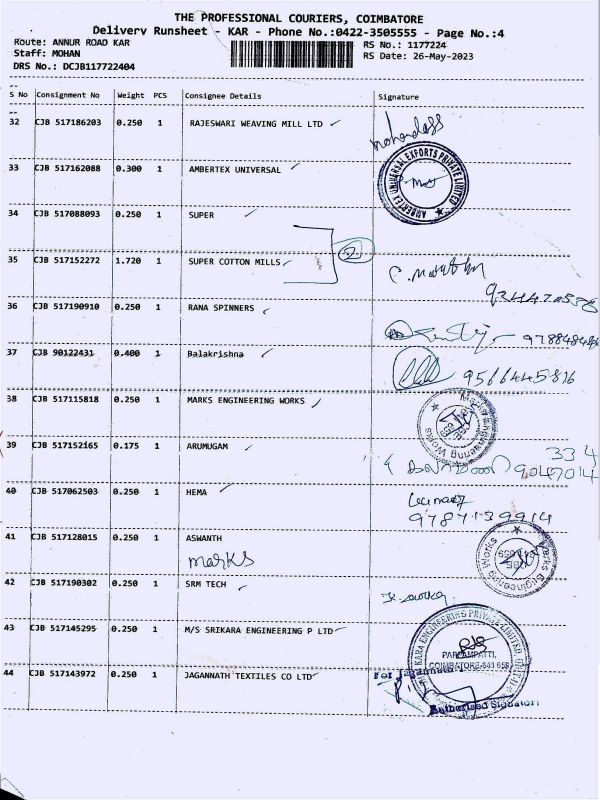 THE PROFESSIONAL COURIERS, COIMBATORE
Delivery Runsheet - KAR - Phone No.:0422-3505555 - Page No.:4
Route: ANNUR ROAD KAR RS No.: 1177224
Staff: MOHAN RS Date: 26-May-2023
DRS No.: DCJB117722404
S No Consignment No Weight PCS Consignee Details Signature
32 CJB 517186203 0.250 1 RAJESWARI WEAVING MILL LTD
33 CJB 517162088 0.300 1 AMBERTEX UNIVERSAL
AMBERTEX UNIVERSAL EXPORTS PRIVATE LIMITED
34 CJB 517088093 0.250 1 SUPER
35 CJB 517152272 1.720 1 SUPER COTTON MILLS
36 CJB 517190910 0.250 1 RANA SPINNERS
37 CJB 90122431 0.400 1 Balakrishna
9566445816
38 CJB 517115818 0.250 1 MARKS ENGINEERING WORKS
Marks Engineering Works
39 CJB 517152165 0.175 1 ARUMUGAM
334
9047014
40 CJB 517062503 0.250 1 HEMA
9787139914
41 CJB 517128015 0.250 1 ASWANTH
marks
Marks Engineering Works
42 CJB 517190302 0.250 1 SRM TECH
43 CJB 517145295 0.250 1 M/S SRIKARA ENGINEERING P LTD
KARA ENGINEERING PRIVATE LIMITED
COIMBATORE-641 659
44 CJB 517143972 0.250 1 JAGANNATH TEXTILES CO LTD
For Jagannath
Authorised Signatory